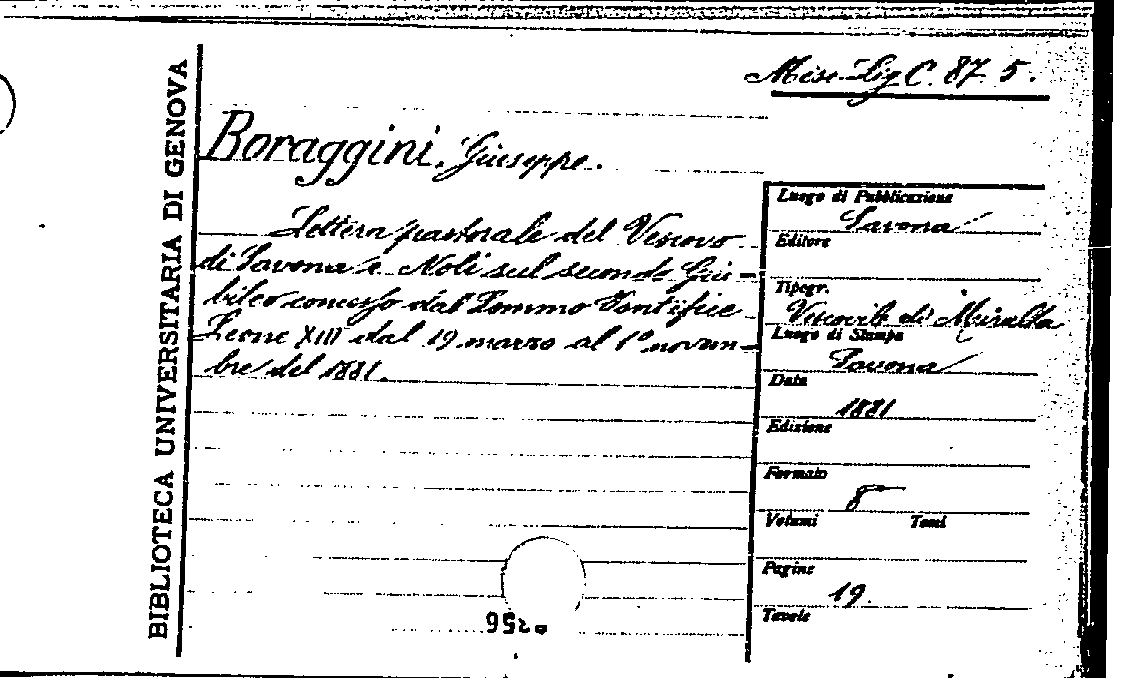 BIBLIOTECA UNIVERSITARIA DI GENOVA
Misc. Lig C. 87. 5.
Boraggini, Giuseppe.
Lettera pastorale del Vescovo
di Savona e Noli sul secondo Giu-
bileo concesso dal Sommo Pontefice
Leone XIII dal 19 marzo al 1º novem-
bre del 1881.
Luogo di Pubblicazione
Savona
Editore
Tipogr.
Vescovile di Miralta
Luogo di Stampa
Savona
Data
1881
Edizione
Formato
8º
Volumi Tomi
Pagine
19.
Tavole